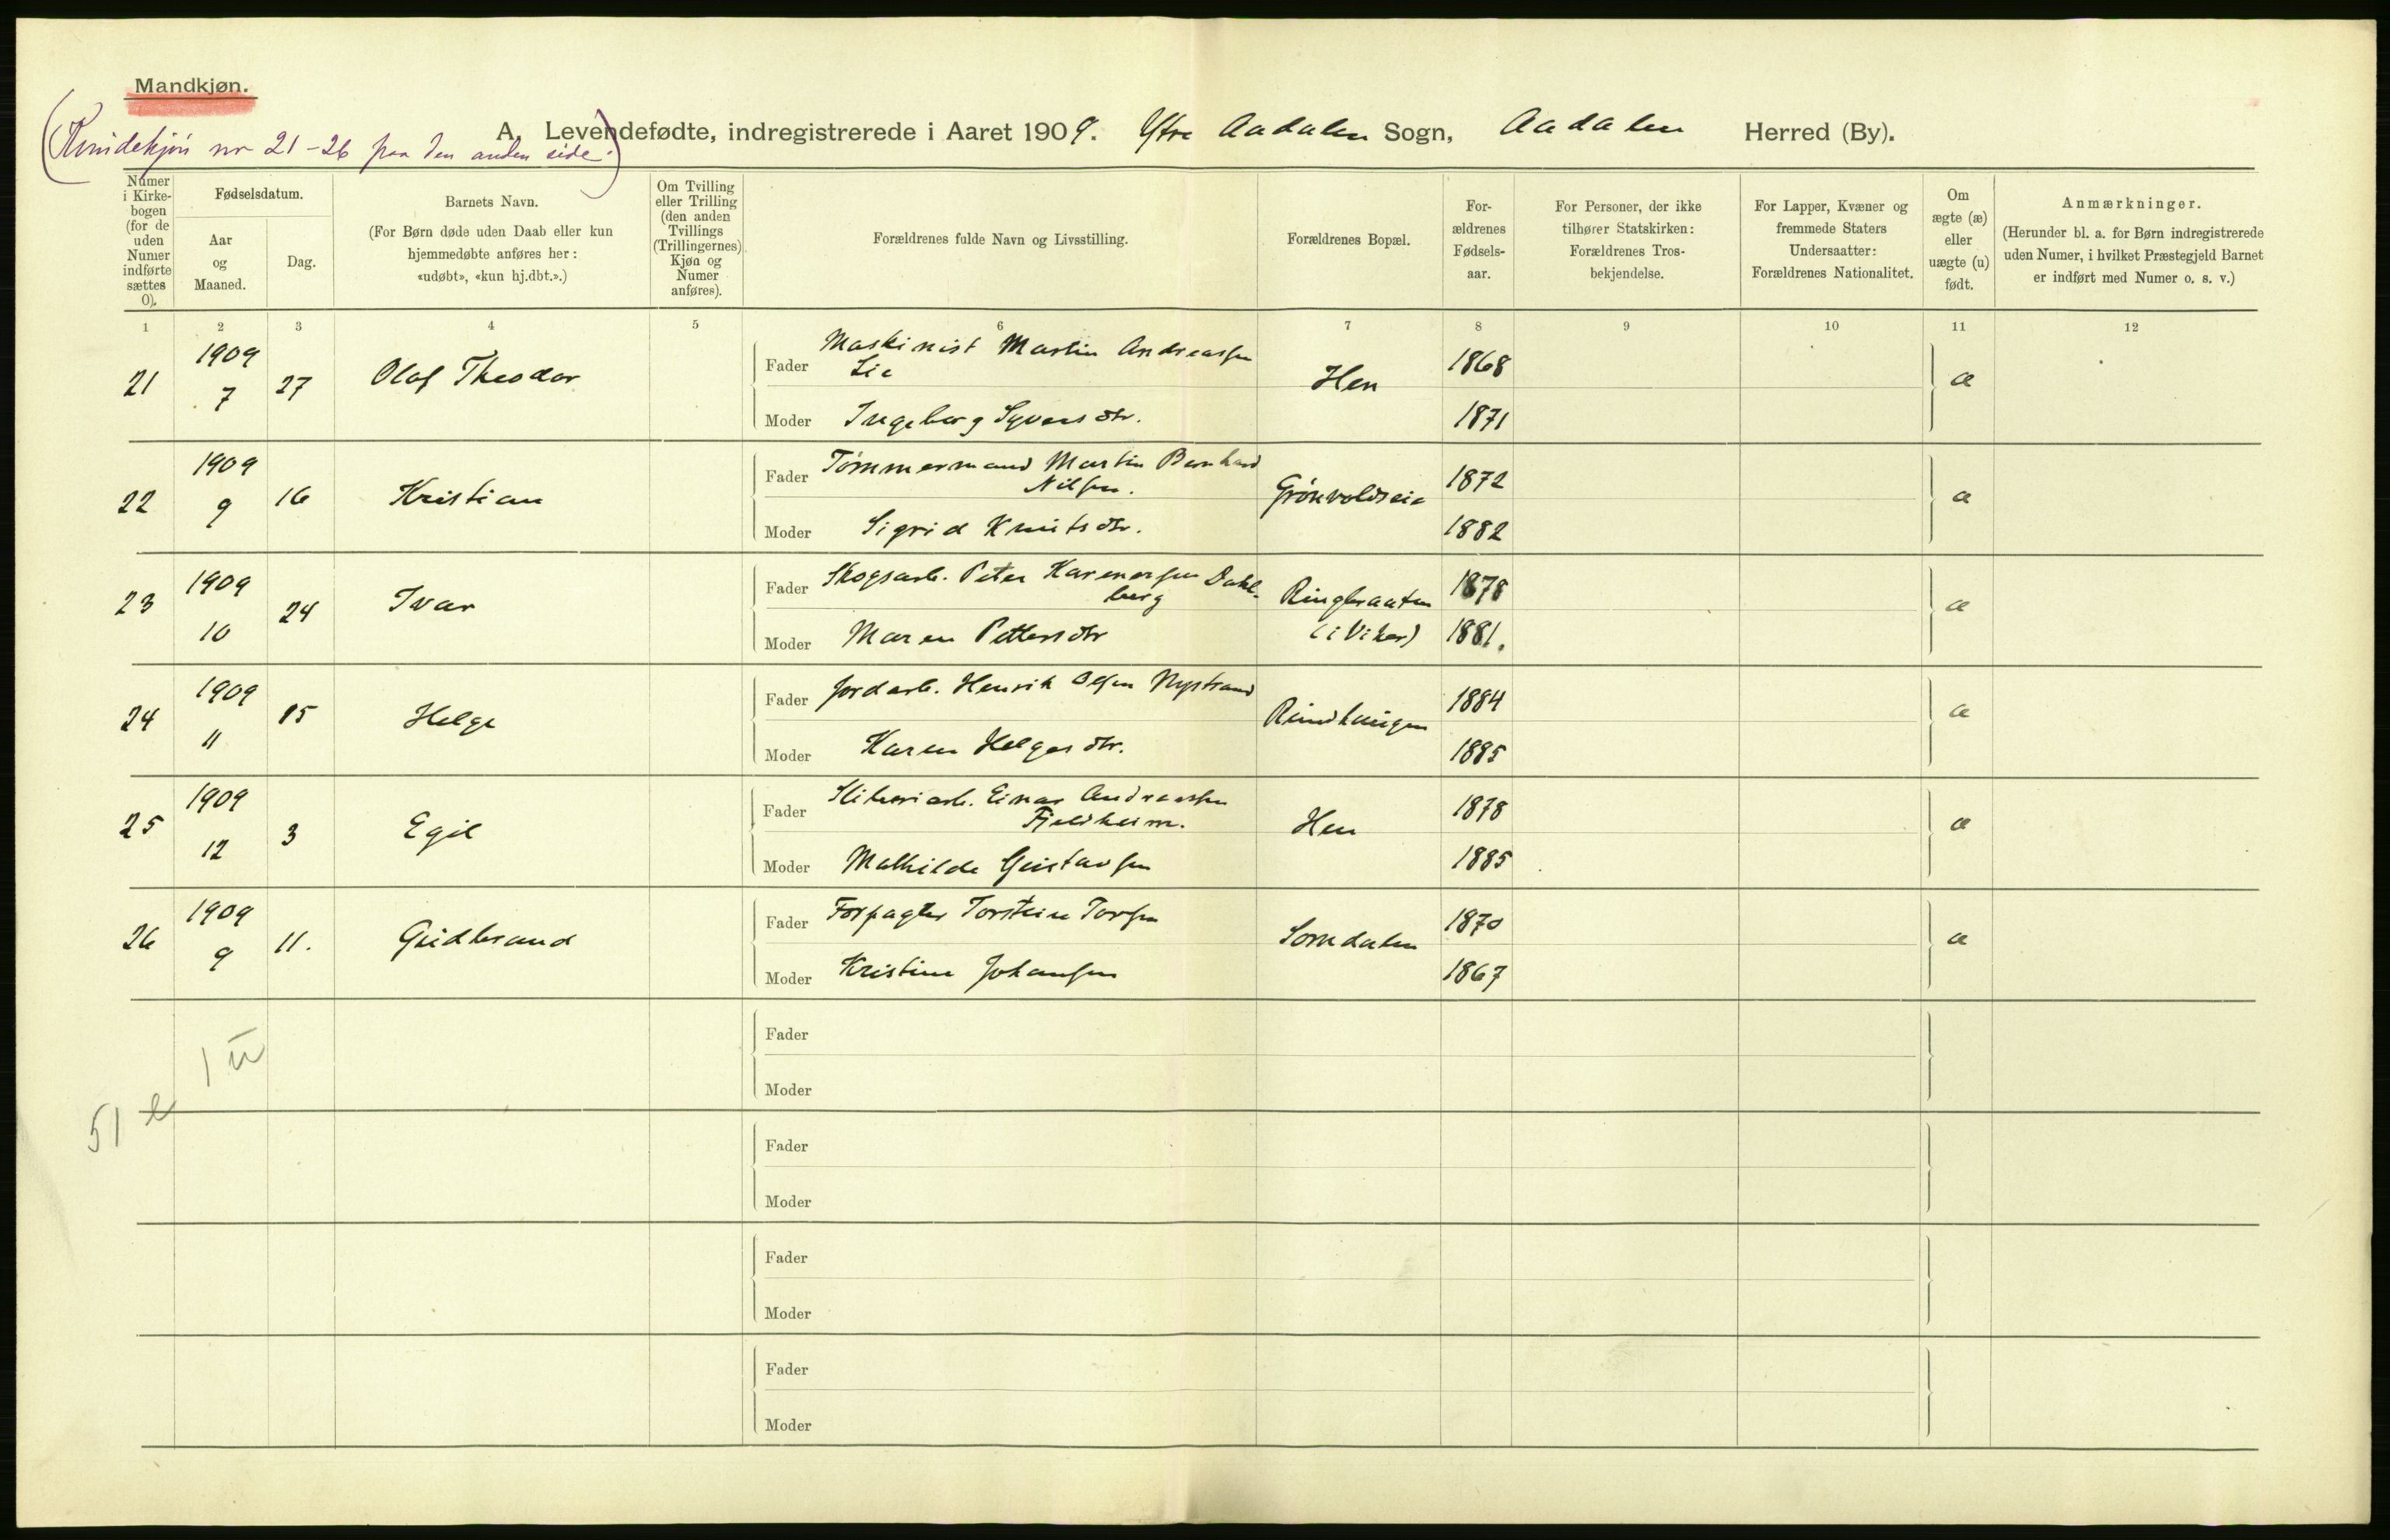 Mandkjøn.
(Kvindekjøn nr 21-26 paa den anden side.)
A. Levendefødte, indregistrerede i Aaret 1909. Ytre Aadalen Sogn, Aadalen Herred (By).
Numer i Kirkebogen (for de uden Numer indførte sættes 0).
Fødselsdatum.
Aar og Maaned.
Dag.
Barnets Navn.
(For Børn døde uden Daab eller kun hjemmedøbte anføres her: «udøbt», «kun hj.dbt.».)
Om Tvilling eller Trilling (den anden Tvillings (Trillingernes) Kjøn og Numer anføres).
Forældrenes fulde Navn og Livsstilling.
Forældrenes Bopæl.
Forældrenes Fødselsaar.
For Personer, der ikke tilhører Statskirken: Forældrenes Trosbekjendelse.
For Lapper, Kvæner og fremmede Staters Undersaatter: Forældrenes Nationalitet.
Om ægte (æ) eller uægte (u) født.
Anmærkninger.
(Herunder bl. a. for Børn indregistrerede uden Numer, i hvilket Præstegjeld Barnet er indført med Numer o. s. v.)
1 2 3 4 5 6 7 8 9 10 11 12
21 1909 7 27 Olaf Theodor
Fader Maskinist Martin Andreassen Lie Hen 1868 æ
Moder Ingeborg Syversdtr. 1871
22 1909 9 16 Kristian
Fader Tømmermand Martin Bernhard Nilsen. Grönvoldseie 1872 æ
Moder Sigrid Knutsdtr. 1882
23 1909 10 24 Ivar
Fader Skogsarb. Peter Karenersen Dahlberg Ringbraaten (i Viker) 1878 æ
Moder Maren Pettersdtr 1881.
24 1909 11 15 Helge
Fader Jordarb. Henrik Olsen Nystrand Rundhaugen 1884 æ
Moder Karen Helgesdtr. 1885
25 1909 12 3 Egil
Fader Sliberiarb. Einar Andreassen Fjeldheim. Hen 1878 æ
Moder Mathilde Gustavsen 1885
26 1909 9 11. Gudbrand
Fader Forpagter Torstein Torsen Somdalen 1870 æ
Moder Kristine Johansen 1867
1 u
Fader
Moder
51 e
Fader
Moder
Fader
Moder
Fader
Moder